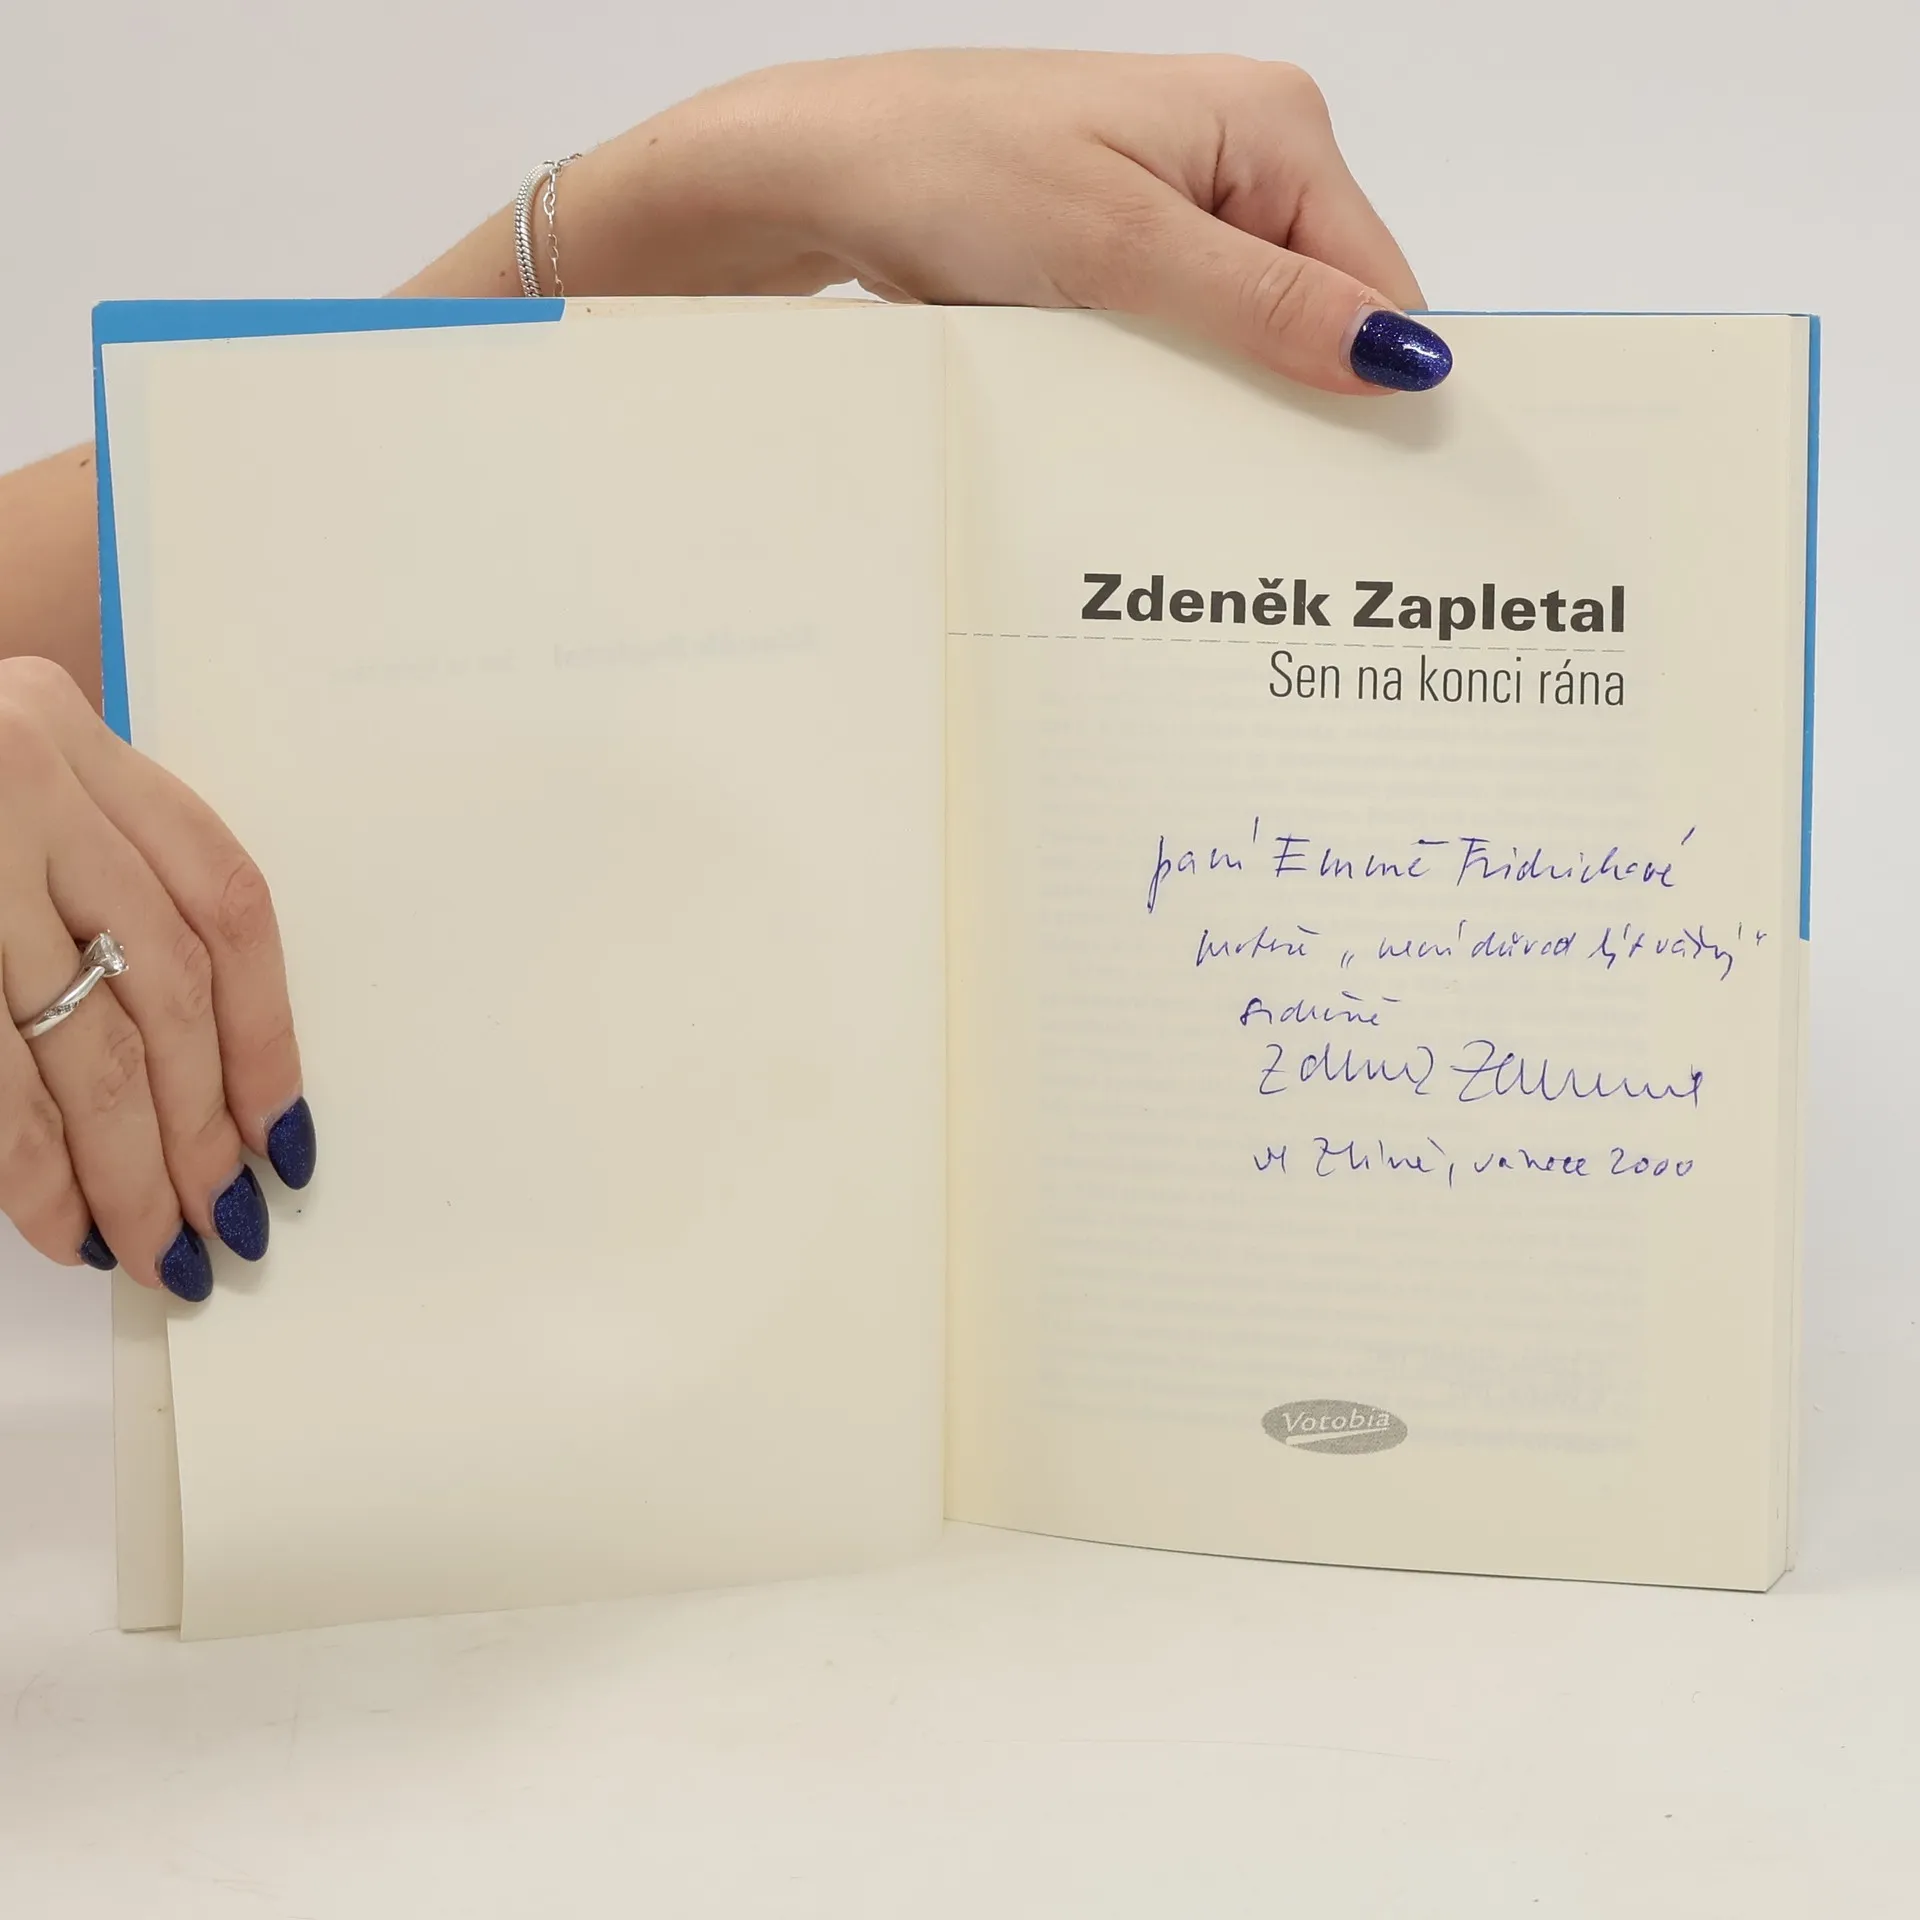 Zdeněk Zapletal
Sen na konci rána
paní Emmě Fridrichové
„není důvod být vážný“
srdečně
Zdeněk Zapletal
ve Zlíně, vánoce 2000
Votobia